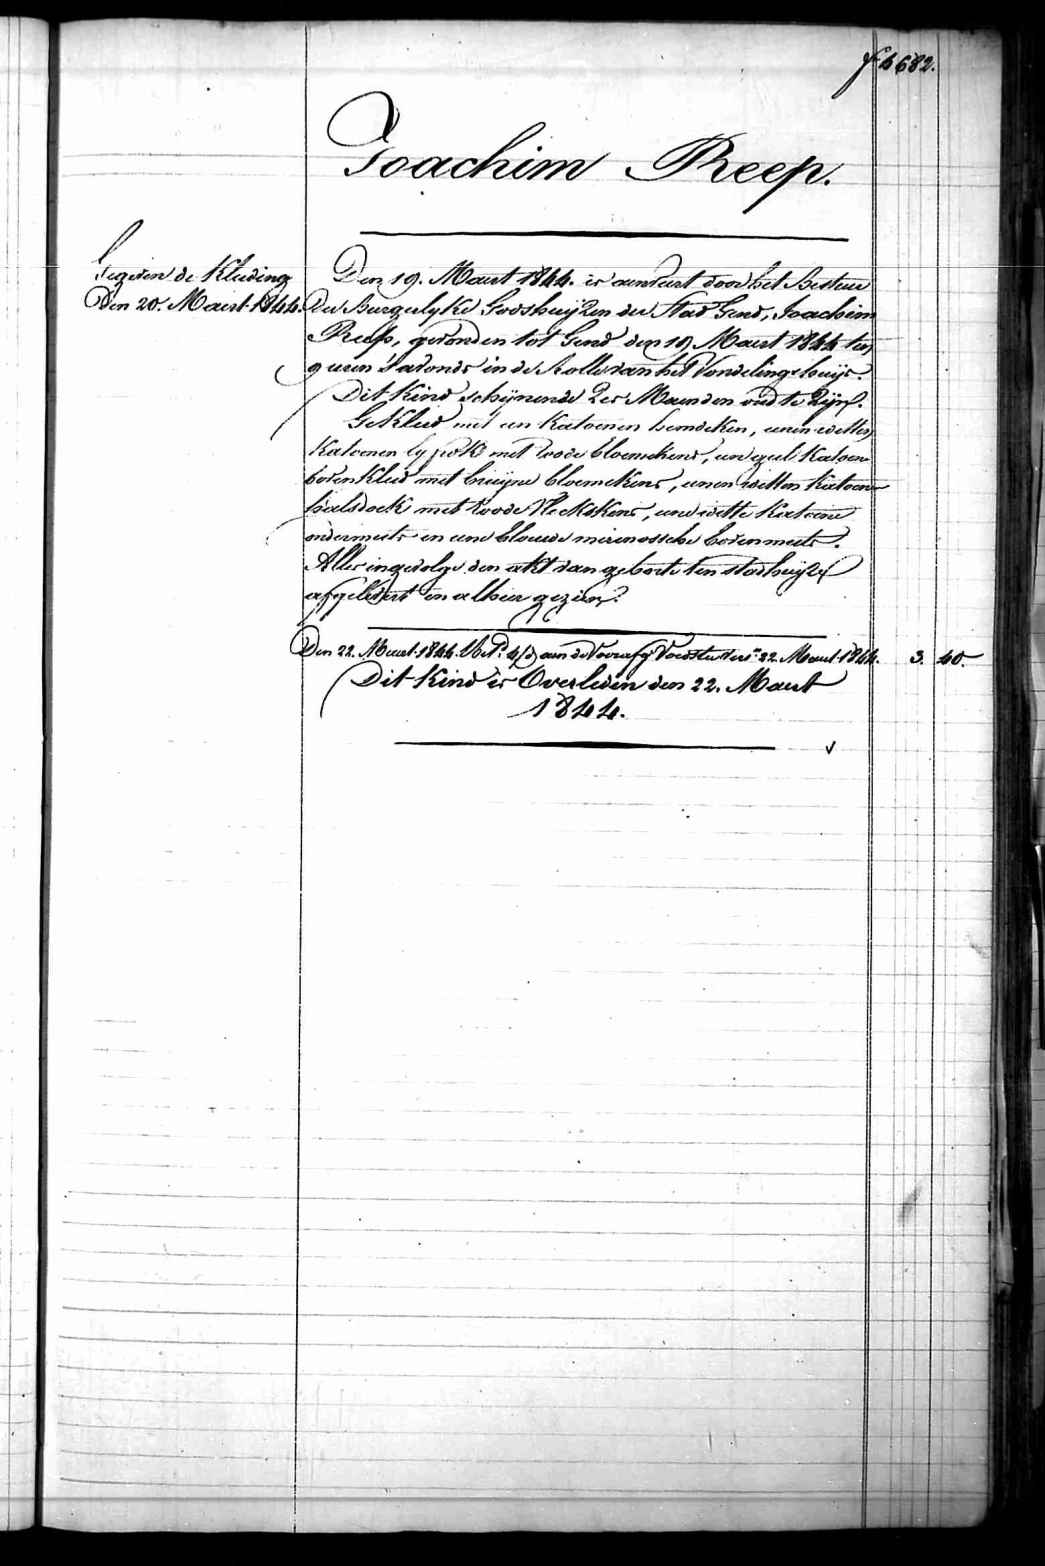 fo 4682.
Joachim Reep.
Gegeven de Kleding
Den 20. Maert 1844.
Den 19. Maert 1844. is aenveert door het Bestuer
der Burgerlyke Godshuijzen der Stad Gend, Joachim
Reep, gevonden tot Gend den 19 Maert 1844 ten
9 uren s'avonds in de Rolle van het Vondelingshuijs.
Dit Kind schijnende 2es Maenden oud te zijn.
Gekleed met een Katoenen hemdeken, eenen witten
Katoenen lyfrok met roode bloemekens, een geel Katoen
bovenkleed met bruijne bloemekens, eenen witten Katoenen
halsdoek met roode Vleckskens, eene witte Katoene
ondermuts en eene blauwe merinossche bovenmuts.
Alles ingevolge den akt van geboorte ten stadhuijze
afgelevert en alhier gezien.
Den 22. Maert 1844. aen de Voedster 22 Maert 1844. 3. 40.
Dit Kind is Overleden den 22. Maert
1844.